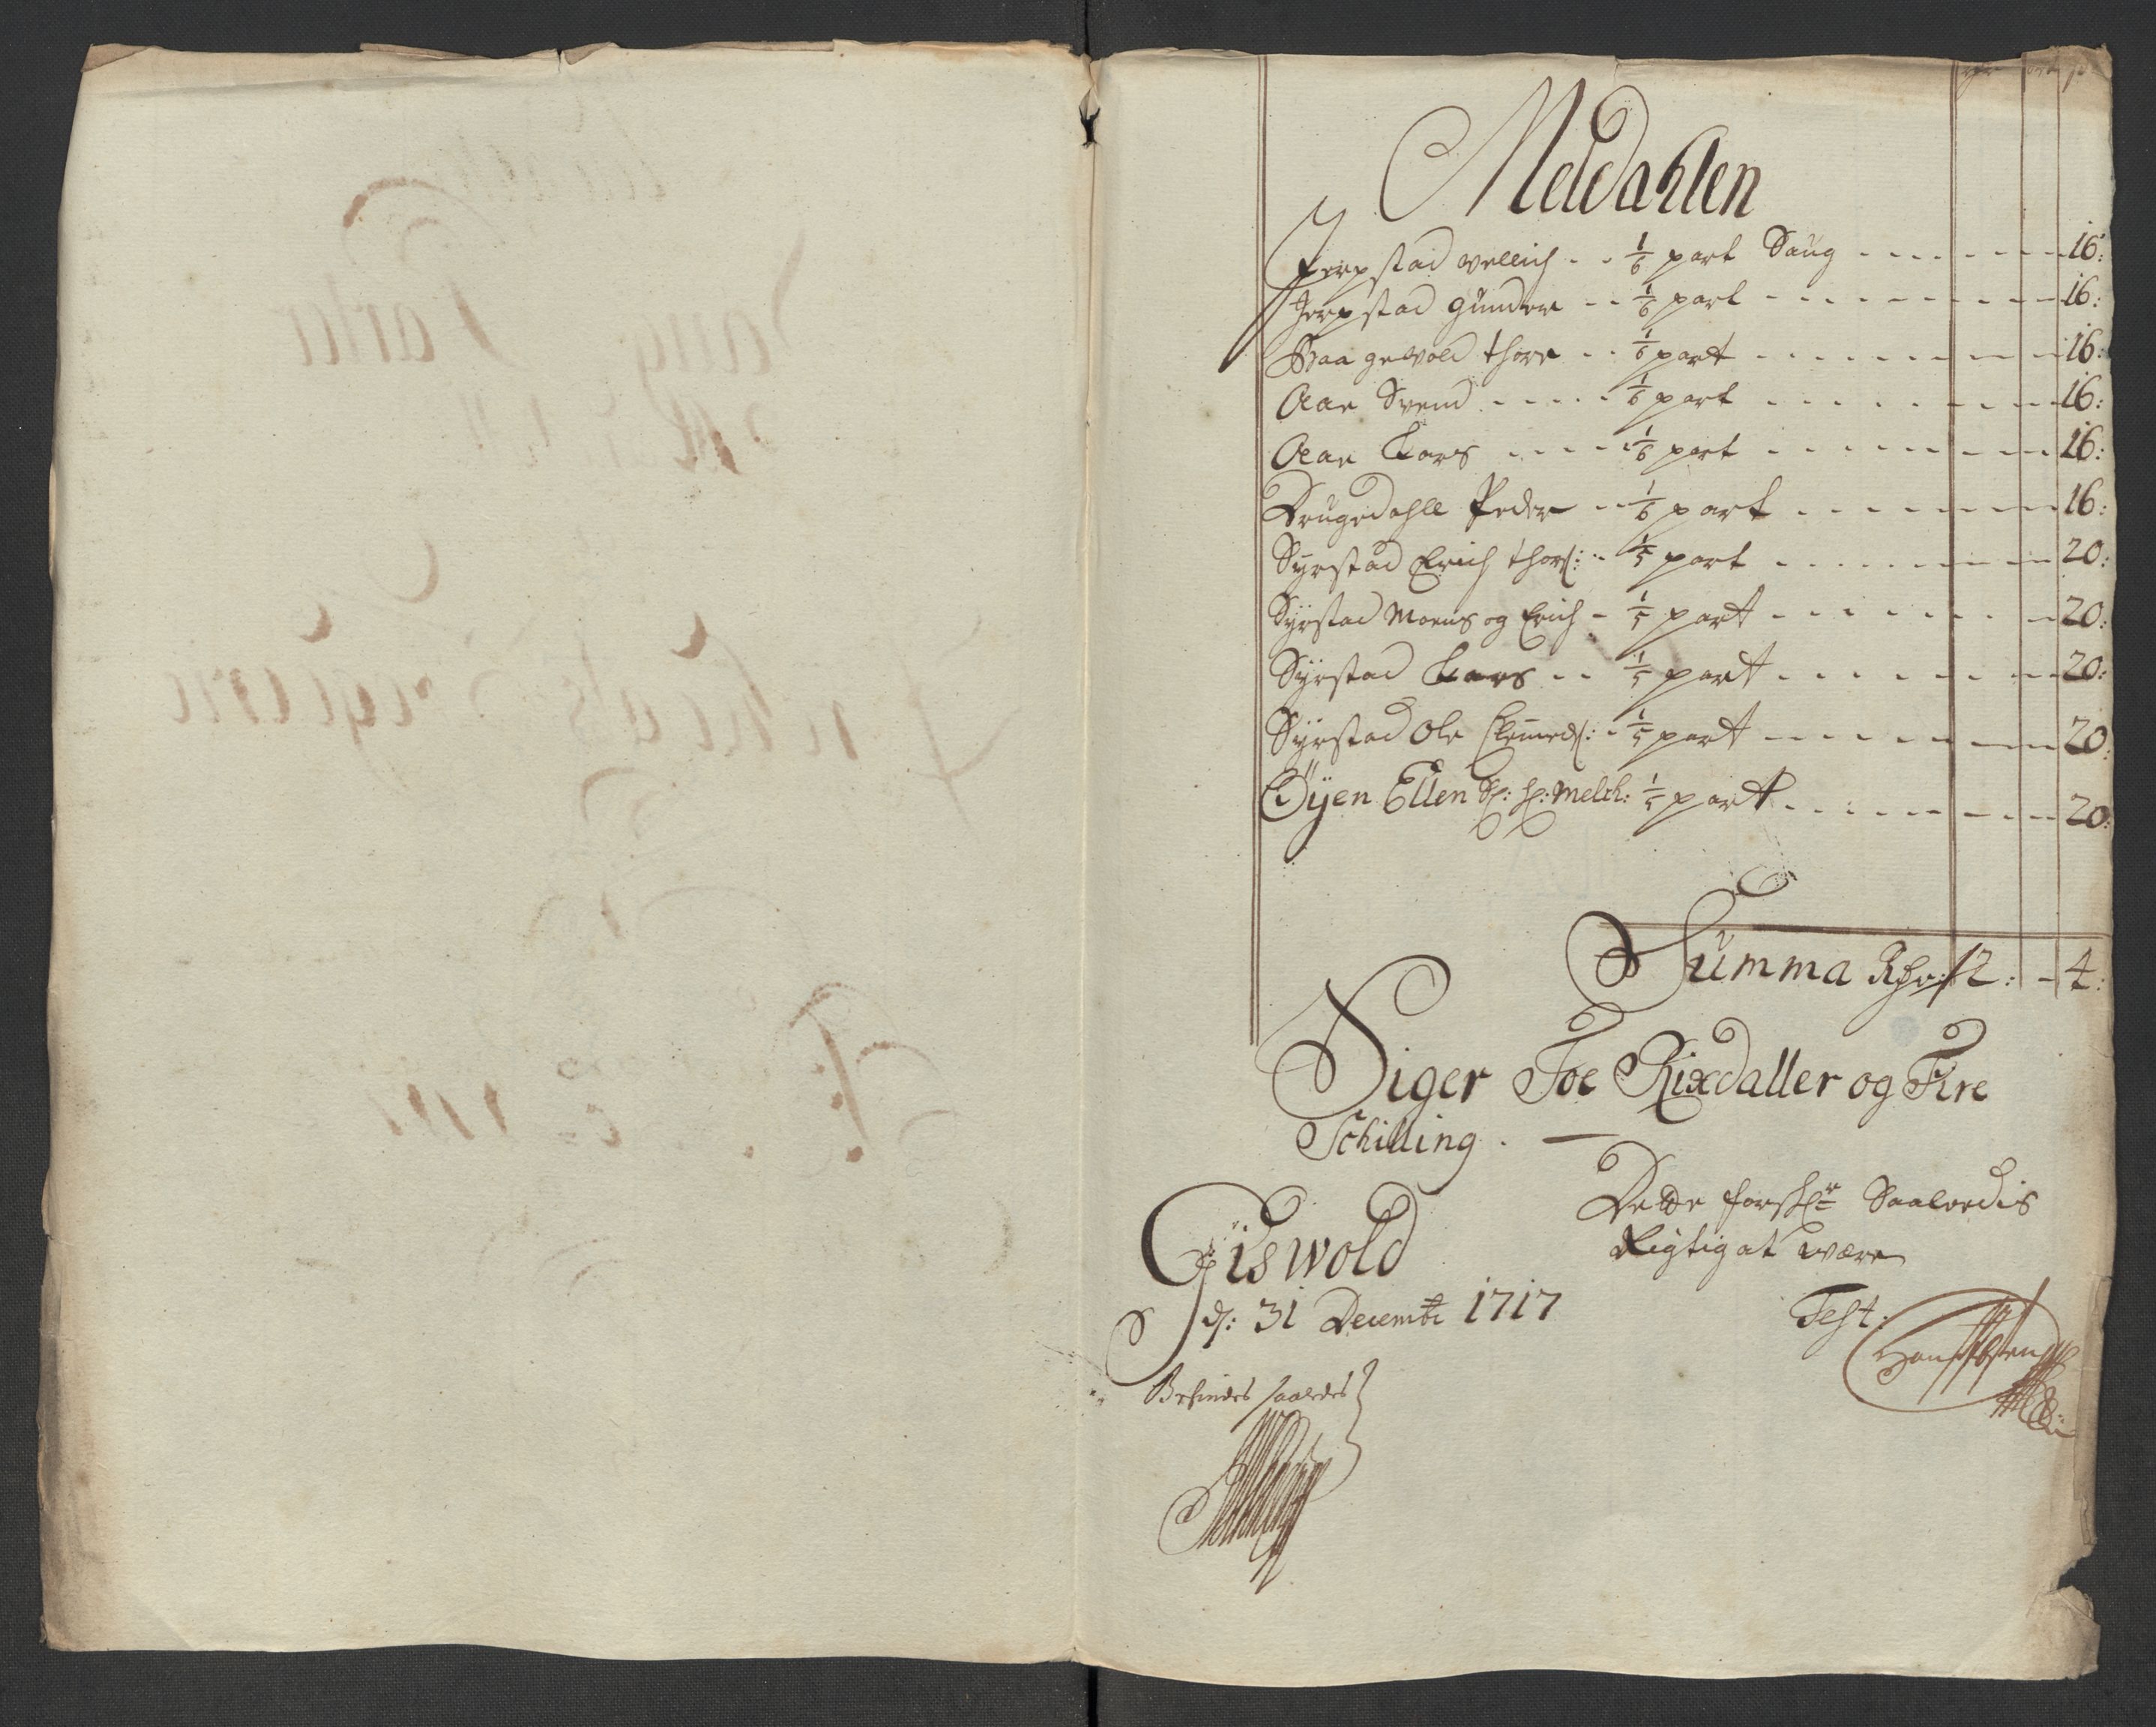 Meldahlen
Jerpstad vellich - - 1/6 part Saug - - - - - - 16:
Jerpstad gunder - - 1/6 part - - - - - - - - 16:
Aaa gevold thore - - 1/6 part - - - - - - - 16:
Aae Svend - - - - 1/6 part - - - - - - - 16:
Aae Lars - - - - 1/6 part - - - - - - - 16:
Drugedahll Peder - - 1/6 part - - - - - - - 16:
Syrstad Erich thors: - 1/5 part - - - - - - - 20:
Syrstad Moens og Erich - 1/5 part - - - - - - - 20:
Syrstad Lars - - 1/5 part - - - - - - - 20:
Syrstad Ole Clemeds: - 1/5 part - - - - - - - 20:
Øyen Ellen Sl: Hr: Melch: 1/5 part - - - - - - - 20:
Summa Rdr: 12: - 4:
Siger Toe Rixdaller og Fire
Schilling. —
Dette forskr Saaledis
Rigtig at være
Giswold
d: 31 Decembr 1717
Test:
Befindes saaledes